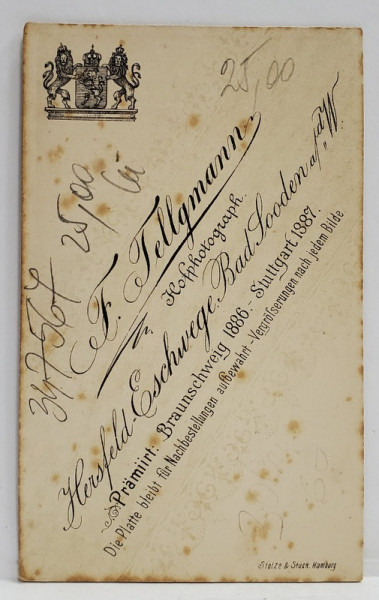 25,00
F. Tellgmann
Hofphotograph.
Hersfeld-Eschwege. Bad Sooden a/d W.
Prämiirt: Braunschweig 1886 - Stuttgart 1887.
Die Platte bleibt für Nachbestellungen aufbewahrt - Vergröſserungen nach jedem Bilde
25,00
Stolze & Stuck. Hamburg